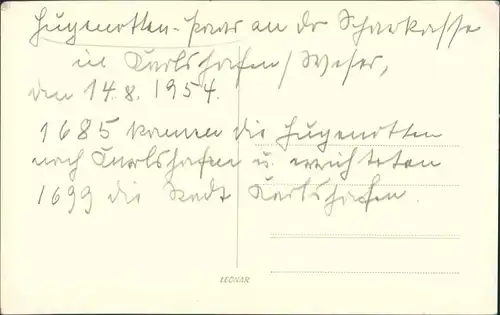 Hugenotten-paar an dr Sparkasse
in Karlshafen/Weser,
den 14.8.1954.
1685 kamen die Hugenotten
nach Karlshafen u. errichteten
1699 die Stadt Karlshafen.
LEONAR